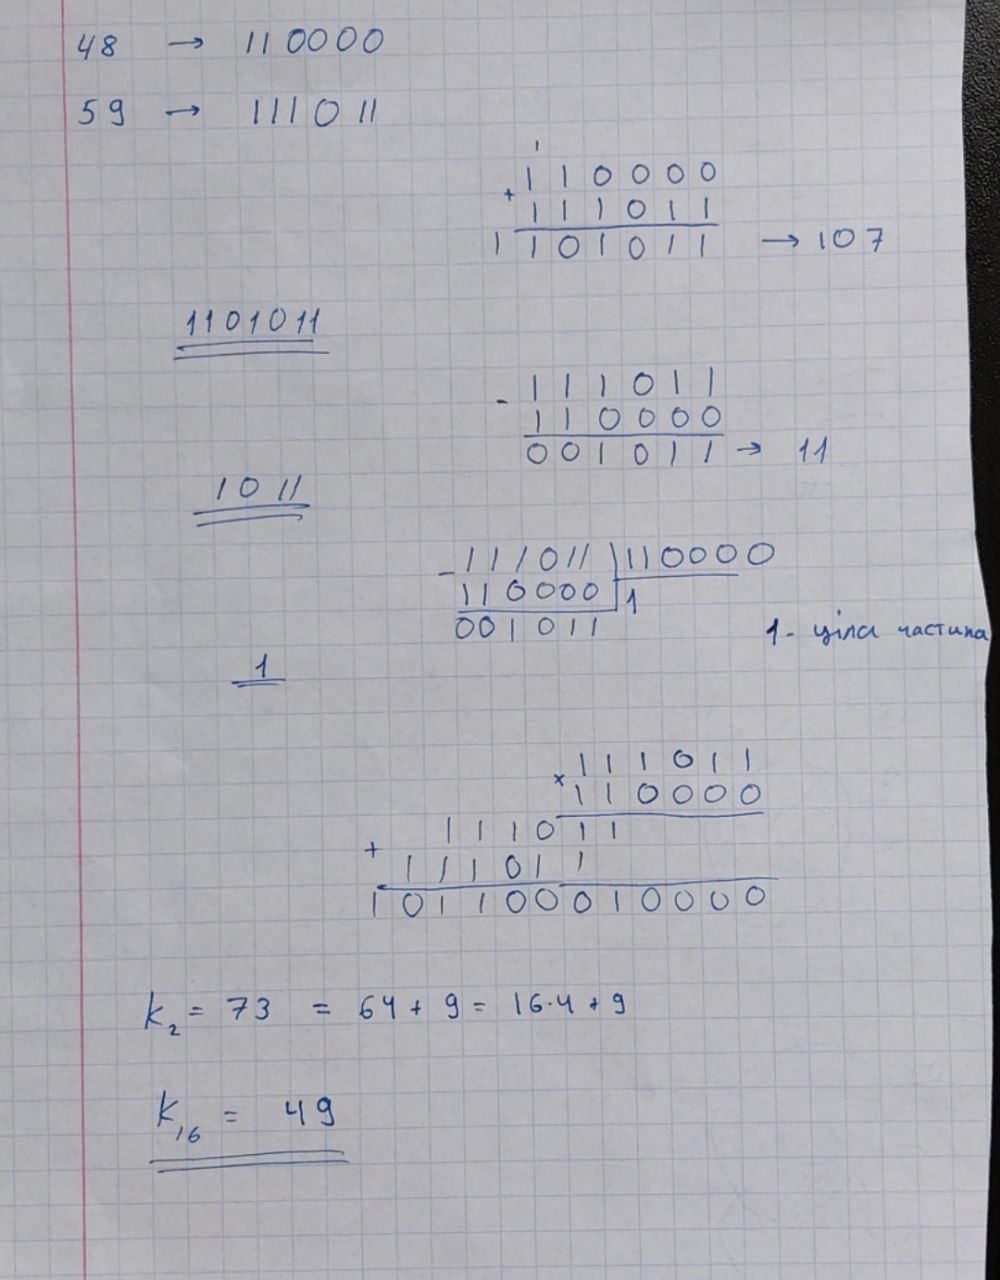 48 → 110000
59 → 111011
1
+ 110000
111011
1101011 → 107
1101011
- 111011
110000
001011 → 11
1011
- 111011 | 110000
110000 | 1
001011
1 - ціла частина
1
× 111011
110000
+ 111011
111011
101100010000
k₂ = 73 = 64 + 9 = 16·4 + 9
k₁₆ = 49